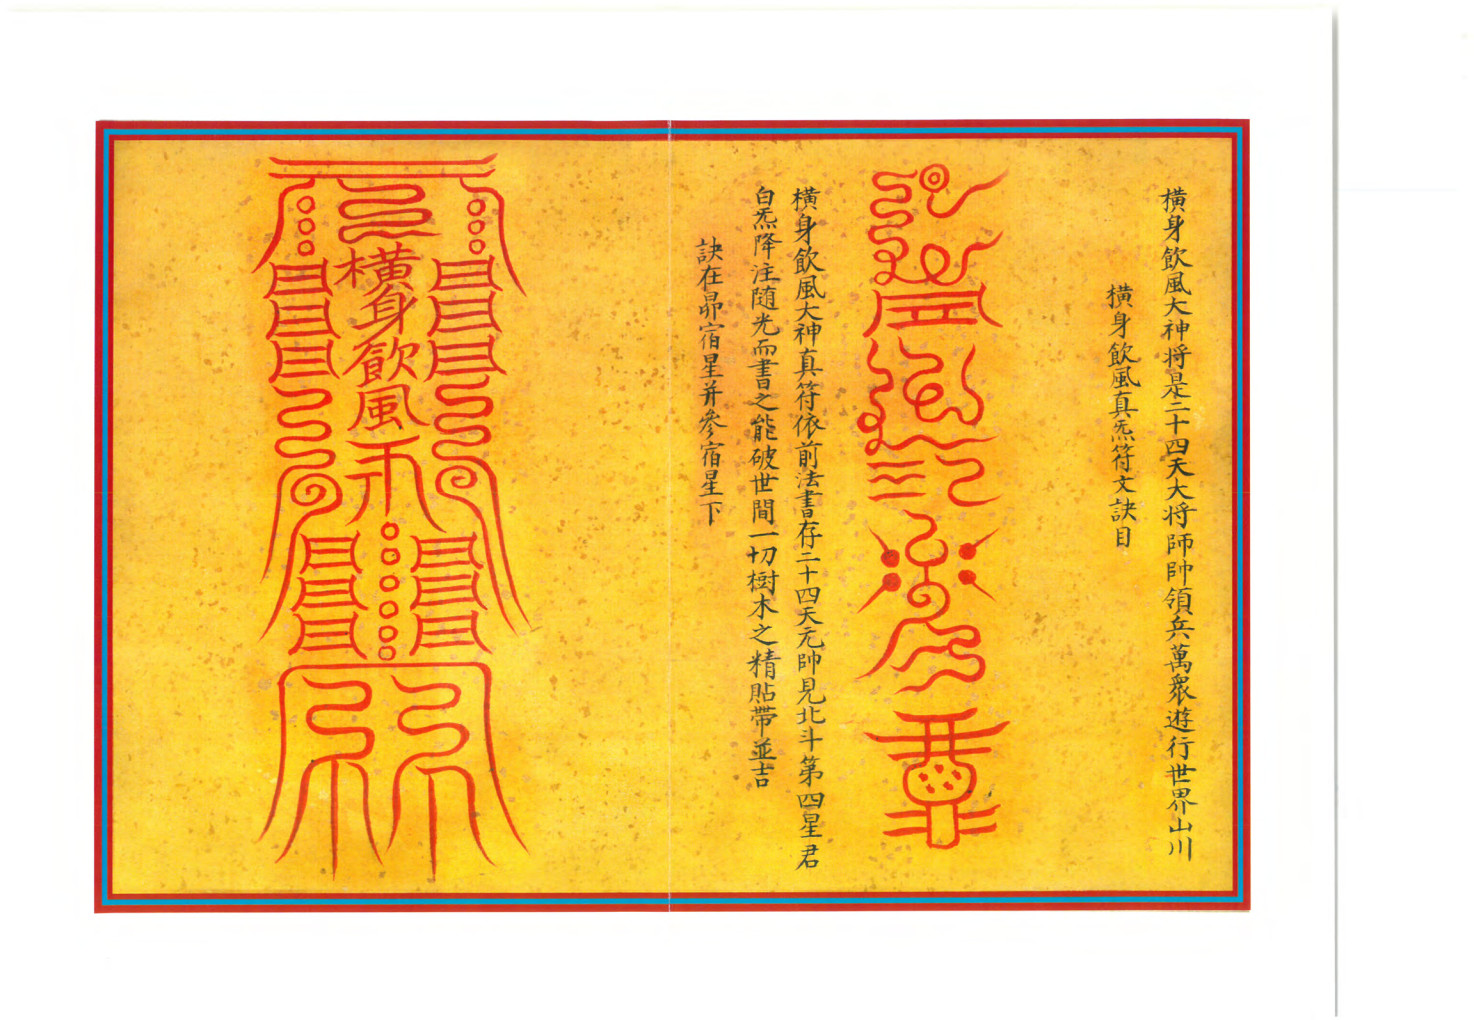 橫身飲風大神将是二十四天大将師帥領兵萬衆遊行世界山川
橫身飲風真炁符文訣目
橫身飲風大神真符依前法書存二十四天元帥見北斗第四星君
白炁降注随光而書之能破世間一切樹木之精貼帶並吉
訣在昴宿星并參宿星下
橫身飲風